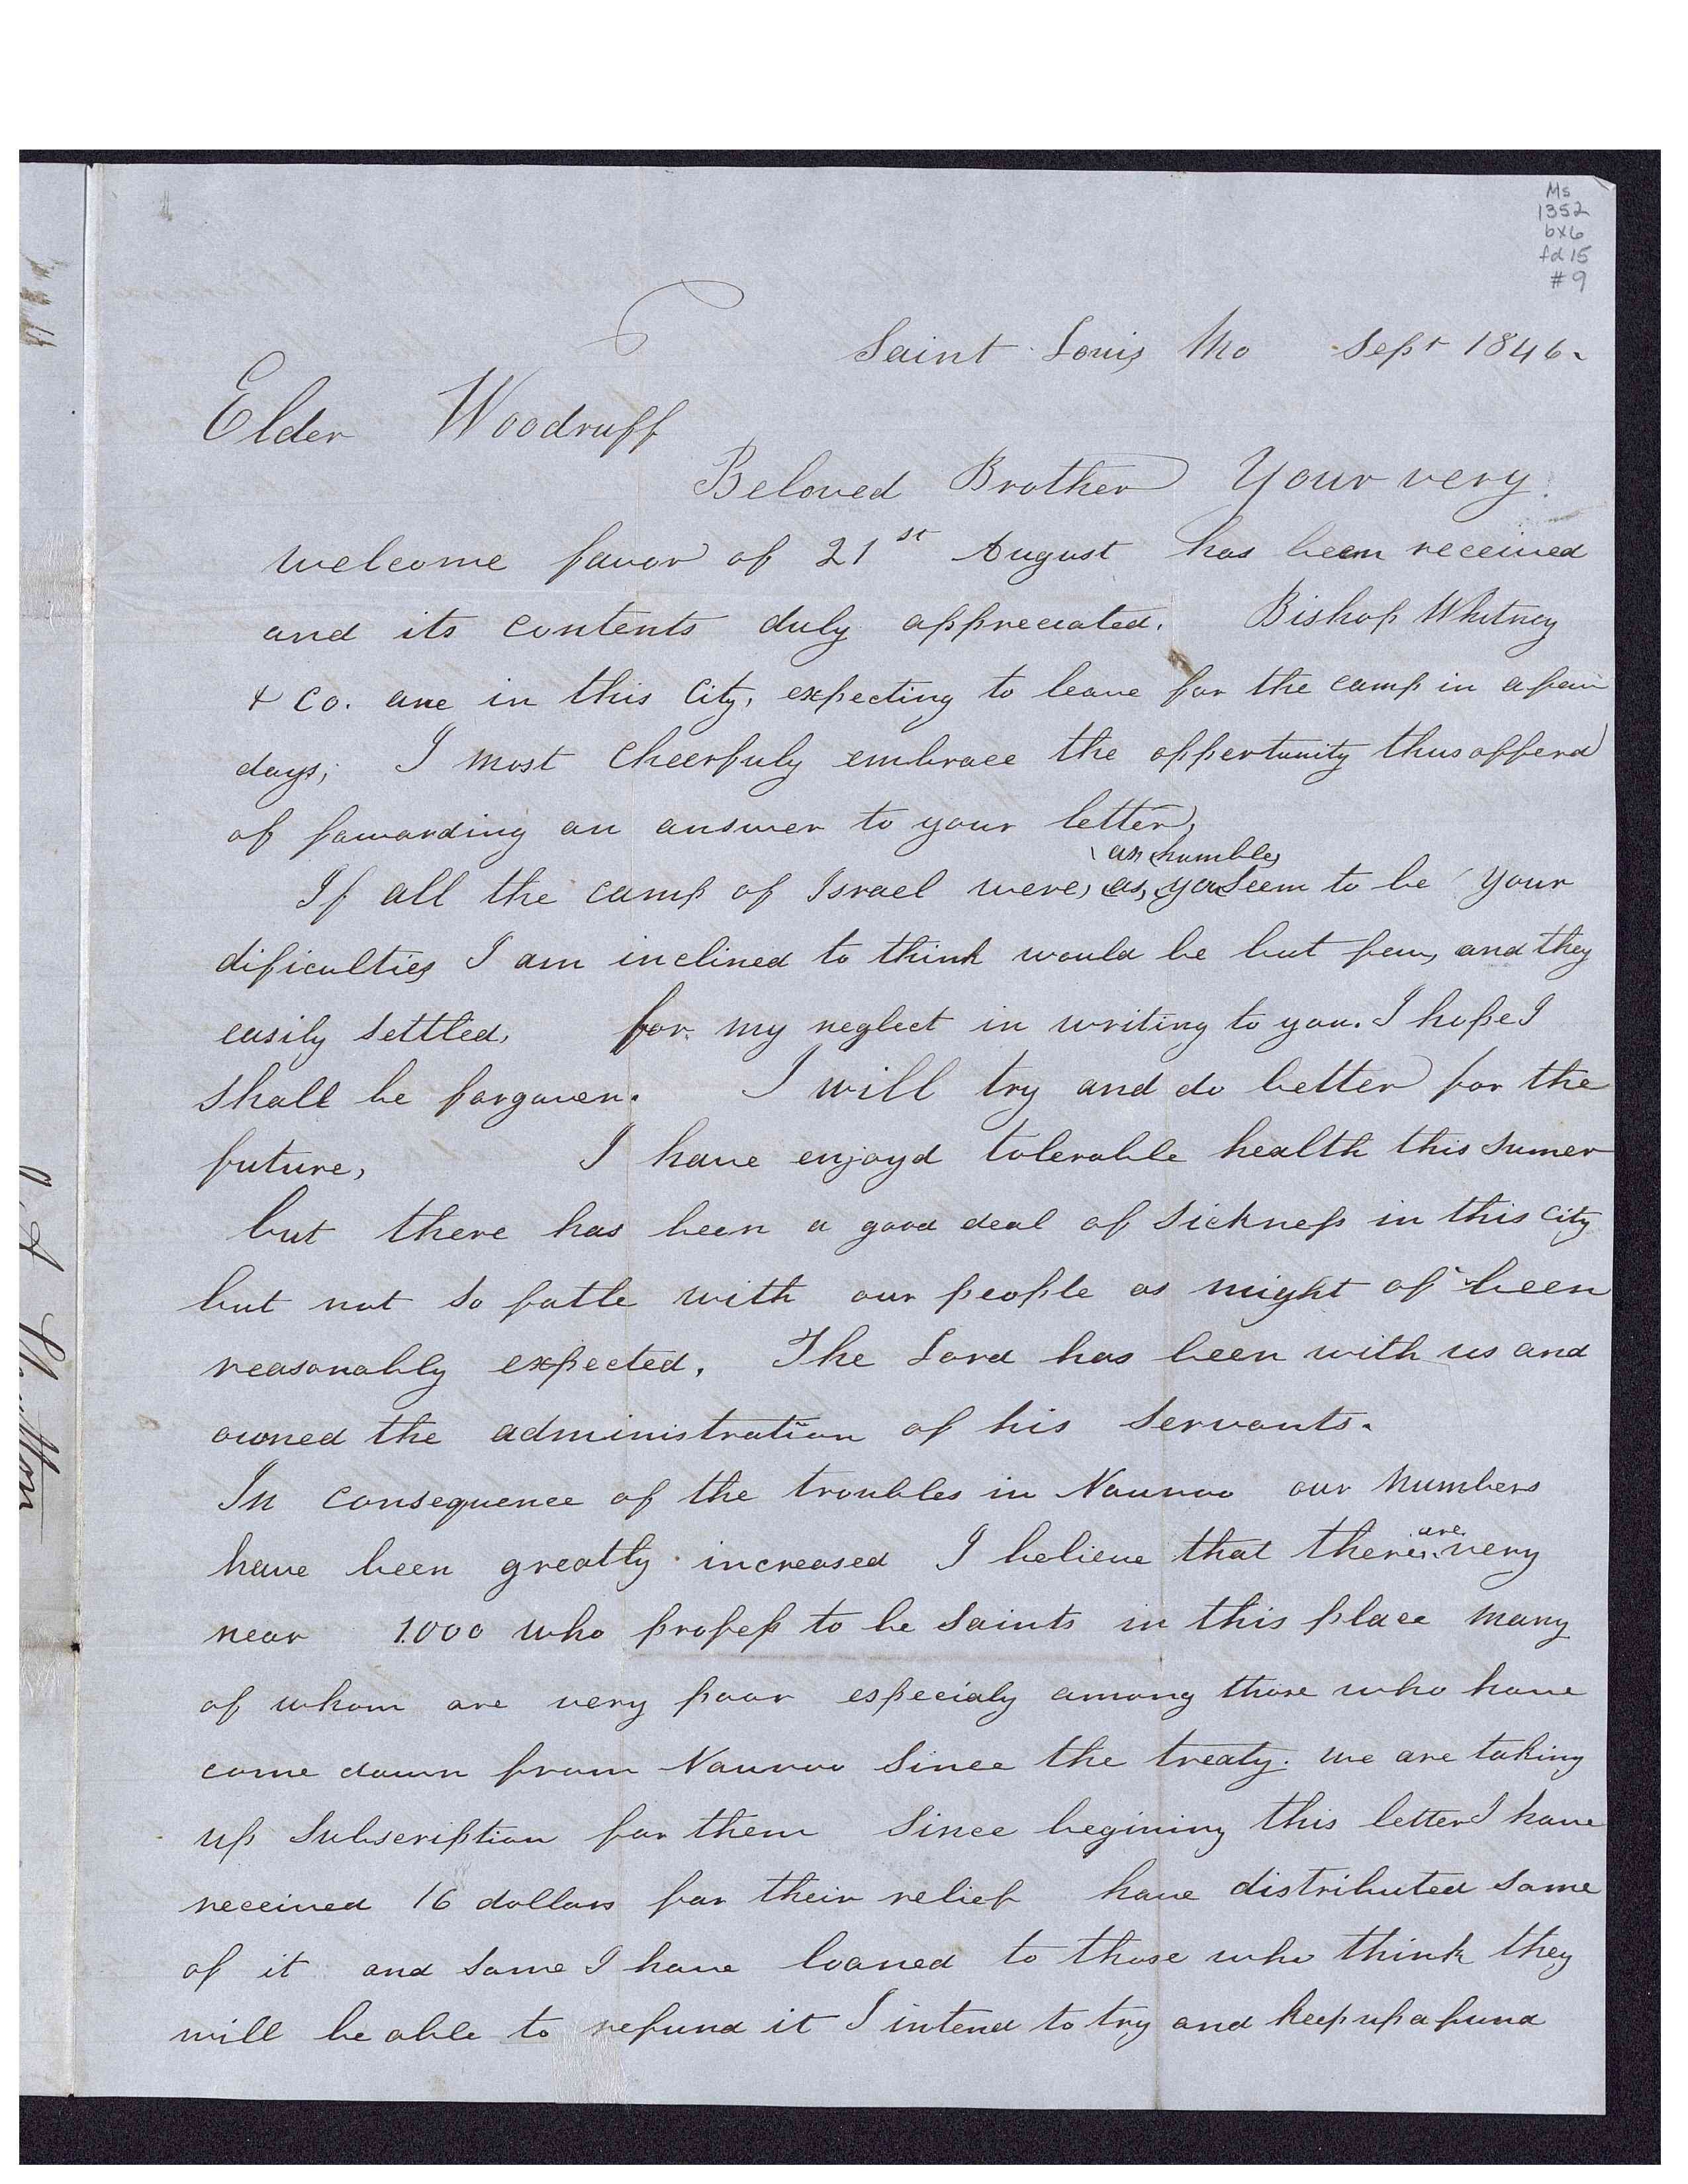 Ms
1352
bx6
fd 15
#9
Saint Louis Mo Sept 1846.
Elder Woodruff
Beloved Brother Your very
welcome favor of 21st August has been received
and its contents duly appreceated. Bishop Whitney
& co. are in this City, expecting to leave for the camp in a few
days; I most cheerfuly embrace the oppertunity thus offerd
of fawarding an answer to your letter,
as humble
If all the camp of Israel were, as, you seem to be your
dificulties I am inclined to think would be but few, and they
easily settled, for my neglect in writing to you. I hope I
shall be forgaven. I will try and do better for the
future, I have enjoyd tolerable health this sumer
but there has been a good deal of sickness in this city
but not so fatle with our people as might of been
reasonably expected, The Lord has been with us and
owned the administration of his servants.
In consequence of the troubles in Nauvoo our numbers
are
have been greatly increased I believe that there very
near 1.000 who profess to be saints in this place many
of whom are very poor especialy among those who have
come down from Nauvoo since the treaty. we are taking
up subscription for them since begining this letter I have
received 16 dollars for their relief have distributed some
of it and some I have loaned to those who think they
will be able to refund it I intend to try and keep up a fund